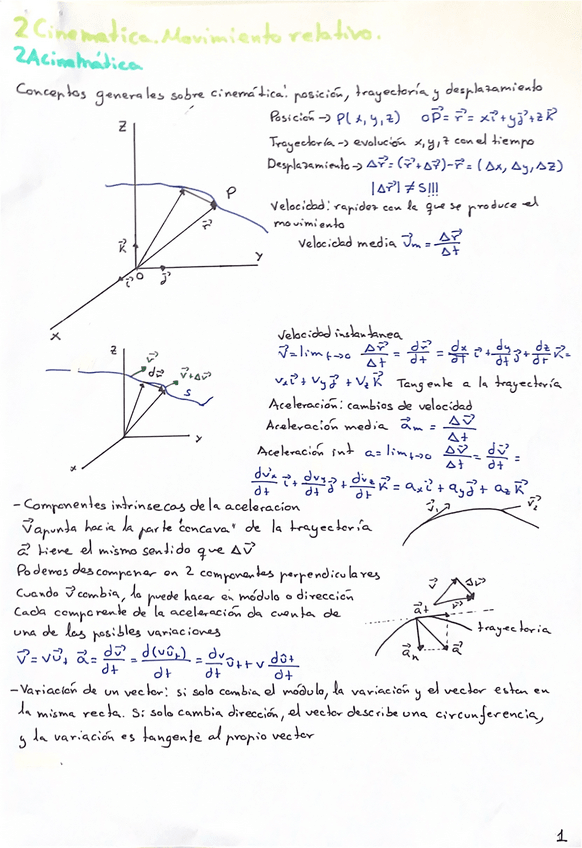 2 Cinematica. Movimiento relativo.
2A cinemática
Conceptos generales sobre cinemática: posición, trayectoria y desplazamiento
Posición → P(x, y, z) OP⃗ = r⃗ = xi⃗ + yj⃗ + zk⃗
Trayectoría → evolución x, y, z con el tiempo
Desplazamiento → Δr⃗ = (r⃗ + Δr⃗) - r⃗ = (Δx, Δy, Δz)
|Δr⃗| ≠ S!!!
Velocidad: rapidez con la que se produce el
movimiento
Velocidad media v⃗m = Δr⃗/Δt
Z
P
r⃗
K⃗
O
i⃗
j⃗
Y
X
Velocidad instantanea
v⃗ = lim t→0 Δr⃗/Δt = dr⃗/dt = dx/dt i⃗ + dy/dt j⃗ + dz/dt K⃗ =
vxi⃗ + vyj⃗ + vzK⃗ Tangente a la trayectoría
Aceleración: cambios de velocidad
Aceleración media a⃗m = Δv⃗/Δt
Aceleración int a = lim t→0 Δv⃗/Δt = dv⃗/dt =
dvx/dt i⃗ + dvy/dt j⃗ + dvz/dt K⃗ = axi⃗ + ayj⃗ + azK⃗
z
v⃗
dr⃗
v⃗+Δv⃗
s
y
x
- Componentes intrinsecas de la aceleracion
v⃗ apunta hacia la parte "concava" de la trayectoría
a⃗ tiene el mismo sentido que Δv⃗
Podemos descomponer en 2 componentes perpendiculares
Cuando v⃗ cambia, lo puede hacer en módulo o dirección
Cada componente de la aceleración da cuenta de
una de las posibles variaciones
v⃗ = vût a⃗ = dv⃗/dt = d(vût)/dt = dv/dt ût + v dût/dt
v⃗₁
v⃗₂
v⃗
Δv⃗
v⃗'
a⃗t
trayectoria
a⃗n
a⃗
- Variación de un vector: si solo cambia el módulo, la variación y el vector estan en
la misma recta. Si solo cambia dirección, el vector describe una circunferencia,
y la variación es tangente al propio vector
1